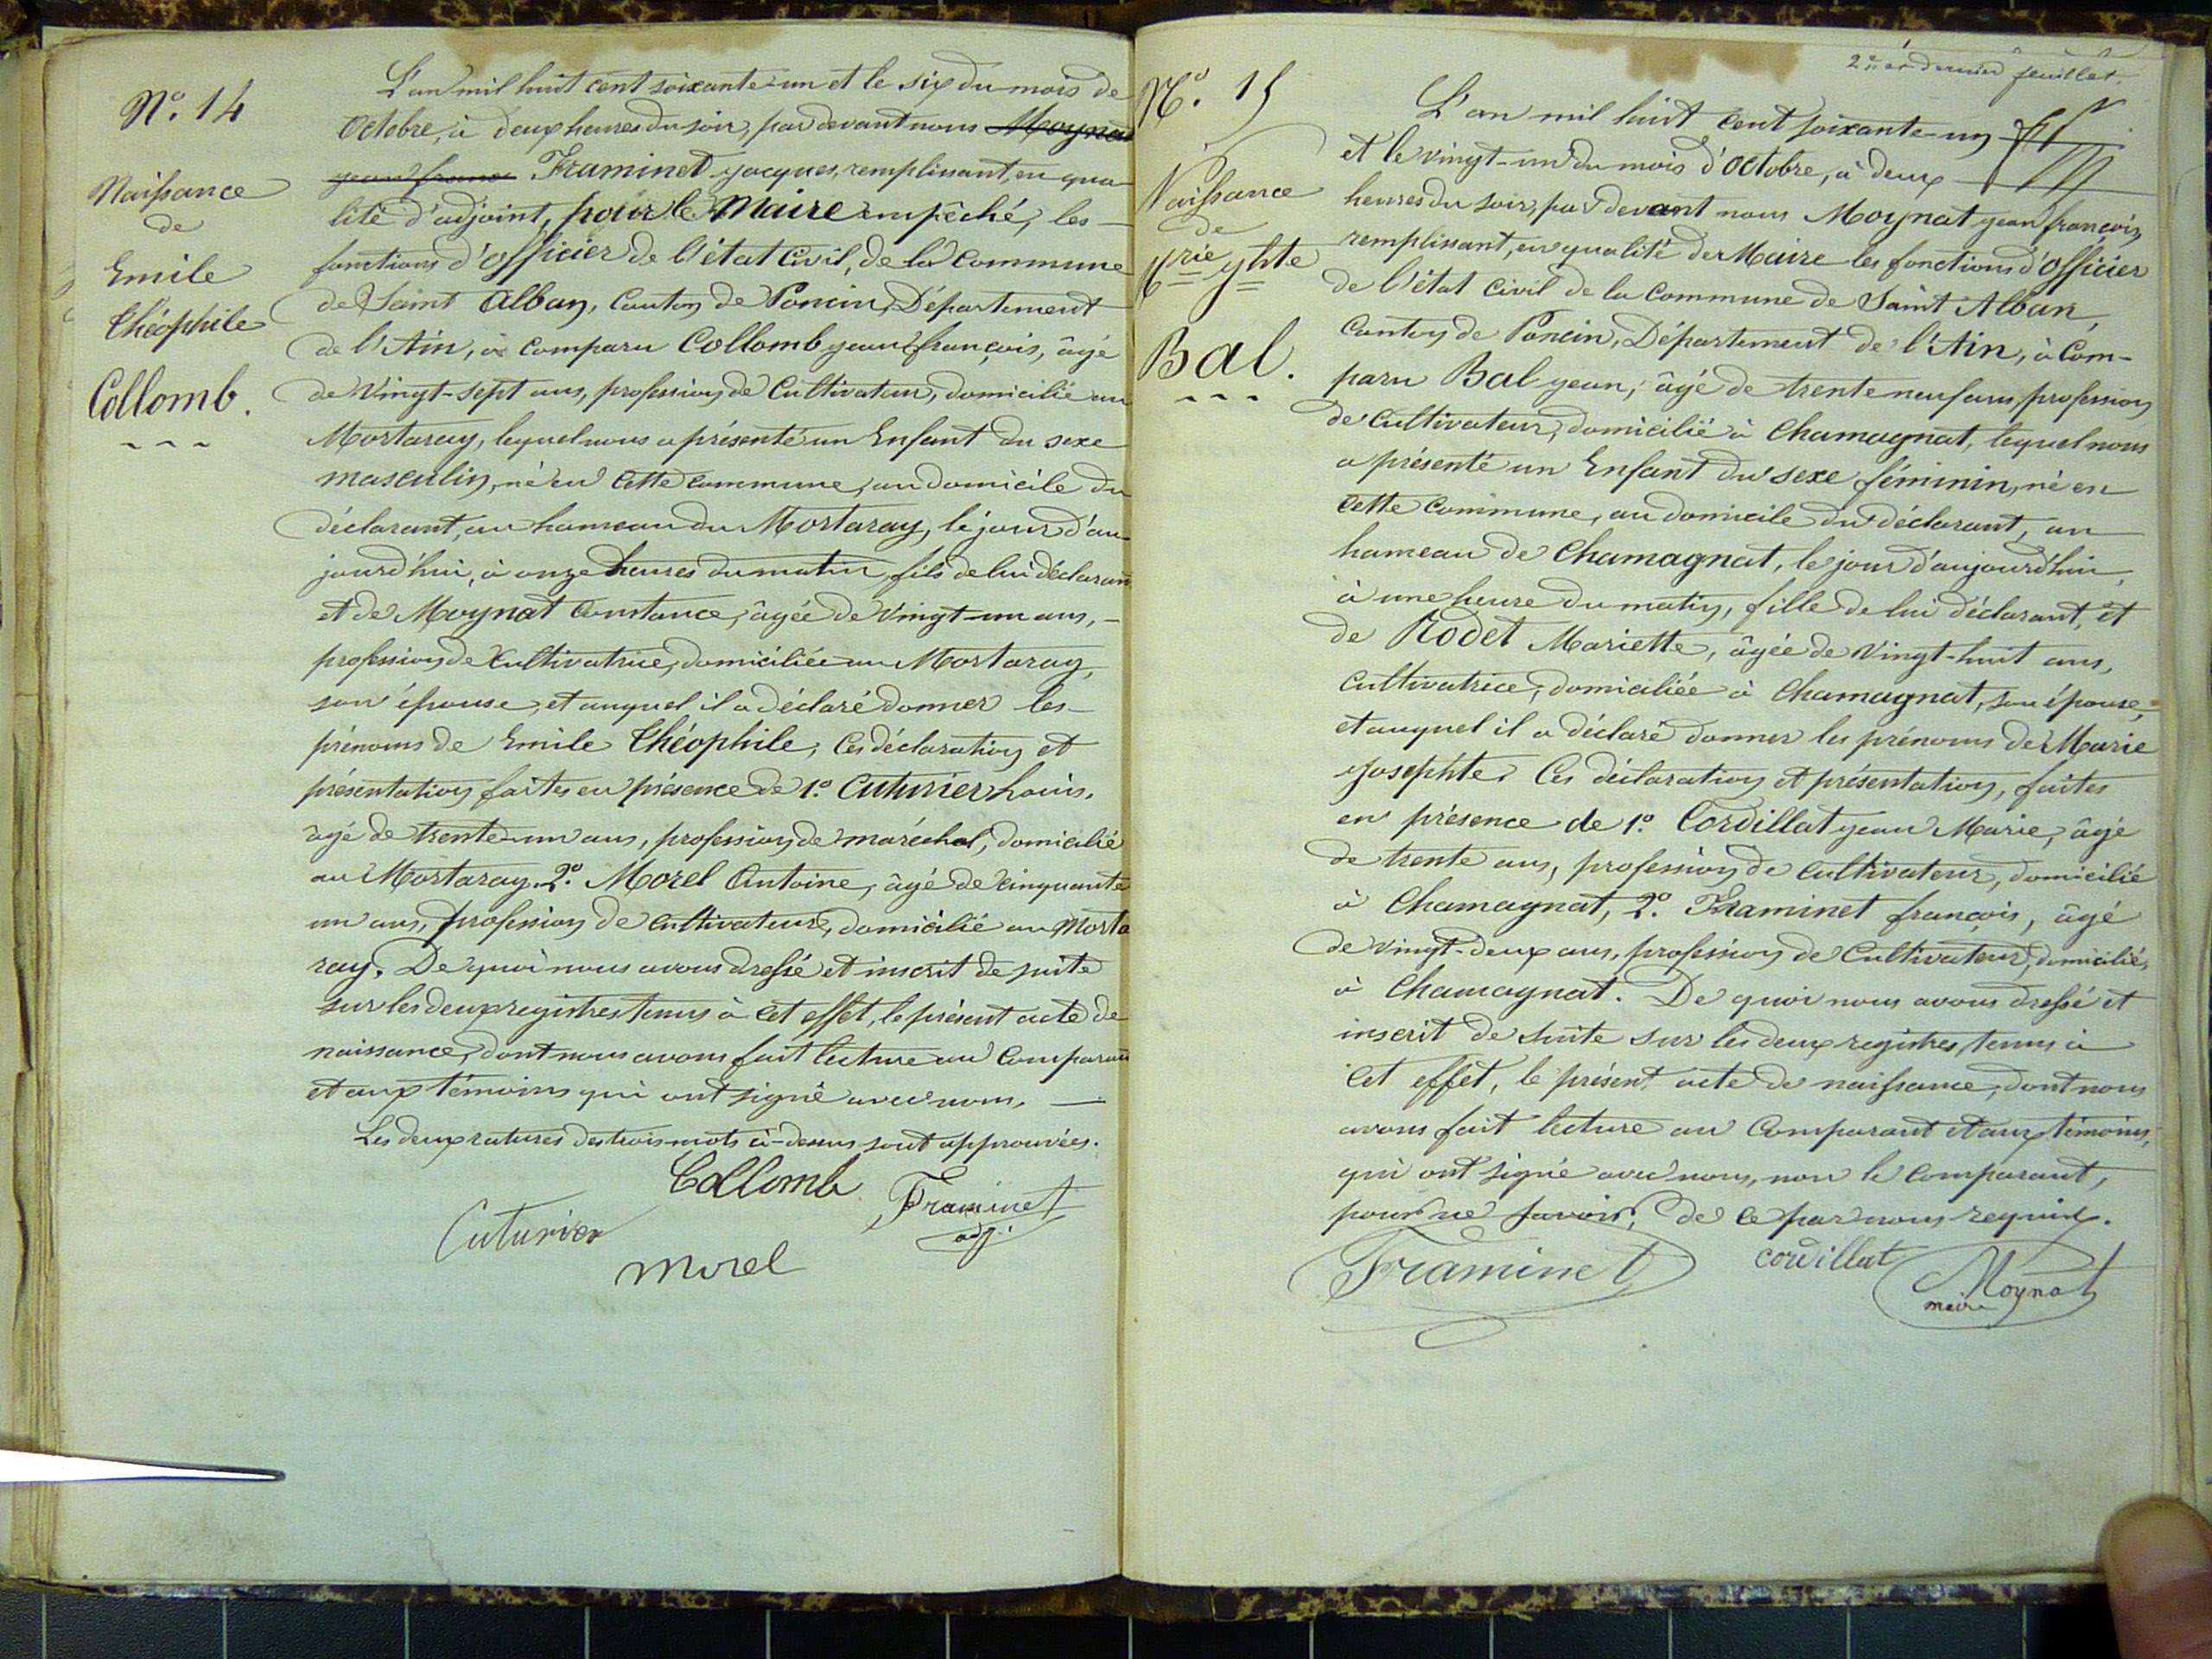 N.° 14
Naissance
de
Emile
Théophile
Collomb.
L'an mil huit cent soixante-un et le six du mois de
Octobre, à deux heures du soir, par devant nous Moynat
jean françois Framinet jacques, remplissant, en qua
lité d'adjoint, pour le Maire empêché, les
fonctions d'officier de l'état Civil, de la Commune
de Saint Alban, Canton de Poncin, Département
de l'Ain, à comparu Collomb jean françois, âgé
de Vingt-sept ans, profession de Cultivateur, domicilié au
Mortaray, lequel nous a présenté un Enfant du sexe
masculin, né en cette commune, au domicile du
déclarant, au hameau du Mortaray, le jour d'au-
jourd'hui, à onze heures du matin, fils de lui déclarant
et de Moynat Constance, âgée de Vingt-un ans,
profession de Cultivatrice, domiciliée au Mortaray,
son épouse, et auquel il a déclaré donner les
prénoms de Emile Théophile, Ces déclaration et
présentation faites en présence de 1.° Cuturier Louis,
âgé de trente-un ans, profession de maréchal, domicilié
au Mortaray. 2.° Morel Antoine, âgé de Cinquante
un ans, profession de Cultivateur, domicilié au Morta
ray. De quoi nous avons dressé et inscrit de suite
sur les deux registres tenus à cet effet, le présent acte de
naissance, dont nous avons fait lecture au Comparant
et aux témoins qui ont signé avec nous,
Les deux ratures des trois mots ci-dessus sont approuvées.
Collomb Framinet
adj.
Cuturier
Morel
2.e et dernier feuillet.
N.° 15
Naissance
de
Mrie jhte
Bal.
L'an mil huit Cent soixante-un
et le vingt-un du mois d'Octobre, à deux
heures du soir, par devant nous Moynat jean françois,
remplissant, en qualité de Maire les fonctions d'Officier
de l'état Civil de la Commune de Saint Alban,
Canton de Poncin, Département de l'Ain, à Com-
paru Bal jean, âgé de trente neuf ans, profession
de Cultivateur, domicilié à Chamagnat, lequel nous
a présenté un Enfant du sexe féminin, né en
cette Commune, au domicile du déclarant, au
hameau de Chamagnat, le jour d'aujourd'hui,
à une heure du matin, fille de lui déclarant, et
de Rodet Mariette, âgée de Vingt-huit ans,
Cultivatrice, domiciliée à Chamagnat, son épouse,
et auquel il a déclaré donner les prénoms de Marie
josephte. Ces déclaration et présentation, faites
en présence de 1.° Cordillat jean Marie, âgé
de trente ans, profession de Cultivateur, domicilié
à Chamagnat, 2.° Framinet françois, âgé
de vingt-deux ans, profession de Cultivateur, domicilié,
à Chamagnat. De quoi nous avons dressé et
inscrit de suite sur les deux registres, tenus à
Cet effet, le présent acte de naissance, dont nous
avons fait lecture au Comparant et aux témoins,
qui ont signé avec nous, non le Comparant,
pour ne savoir, de ce par nous requis.
Framinet cordillat Moynat
maire